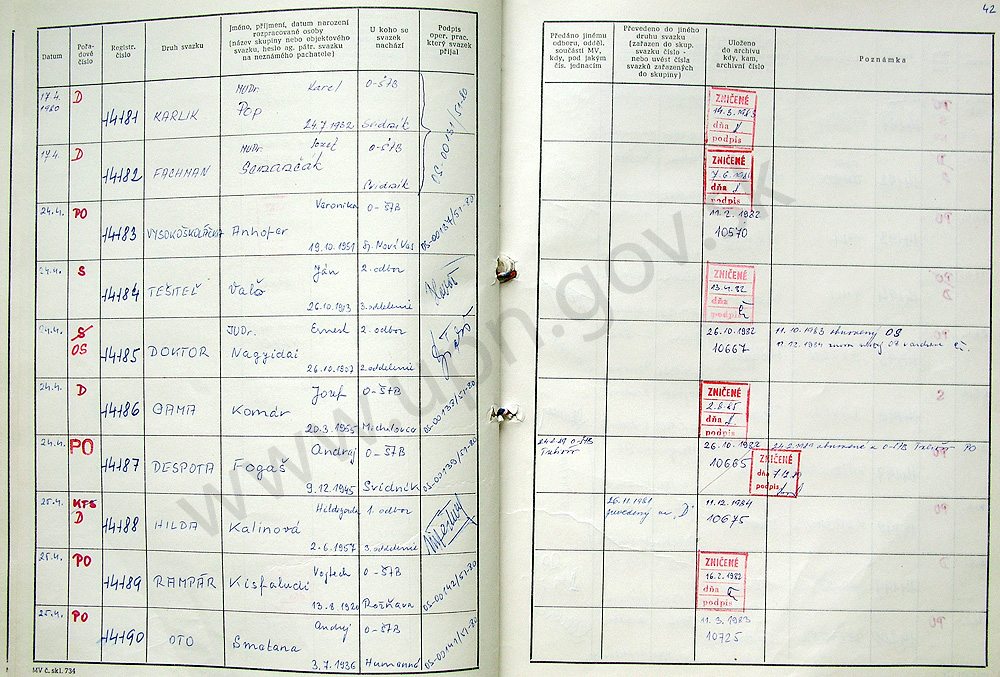 42
Datum
Pořa-
dové
číslo
Registr.
číslo
Druh svazku
Jméno, příjmení, datum narození
rozpracované osoby
(název skupiny nebo objektového
svazku, heslo ag. pátr. svazku
na neznámého pachatele)
U koho se
svazek
nachází
Podpis
oper. prac.
který svazek
přijal
Předáno jinému
odboru, odděl.
součásti MV,
kdy, pod jakým
čís. jednacím
Převedeno do jiného
druhu svazku
(zařazen do skup.
svazku číslo -
nebo uvést čísla
svazků zařazených
do skupiny)
Uloženo
do archivu
kdy, kam,
archivní číslo
Poznámka
17.4. 1980 D MUDr. Karel O-ŠTB
14181 KARLIK Pop
24.7.1932 Svidník
OS-00131/51-80
ZNIČENÉ
14.3.1983
dňa
podpis
17.4. D MUDr. Jozef O-ŠTB
14182 FACHMAN
Svidník
ZNIČENÉ
dňa
podpis
24.4. PO Veronika O-ŠTB
14183 Anhofer
19.10.1951 Sp. Nová Ves OS-00137/51-80
11.2.1982
10570
24.4. S Ján 2. odbor
14184 TEŠITEĽ Valo
26.10.1913 3. oddelenie
ZNIČENÉ
13.4.82
dňa
podpis
24.4. S OS JUDr. Ernest 2. odbor
14185 DOKTOR Nagyidai
26.10.1907 2. oddelenie
26.10.1982
10667
11.10.1983 OS
24.4. D Jozef O-ŠTB
14186 GAMA Komár
20.3.1955 Michalovce OS-00138/51-80
ZNIČENÉ
2.8.85
dňa
podpis
24.4. PO Andrej O-ŠTB
14187 DESPOTA Fogaš
9.12.1945 Svidník OS-00139/51-80
O-ŠTB
26.10.1982
10665
ZNIČENÉ
dňa
podpis
O-ŠTB PO
25.4. KTS D Hildegarda 1. odbor
14188 HILDA Kalinová
2.6.1957 3. oddelenie
26.11.1981
prevedený na "D"
11.12.1984
10675
25.4. PO Vojtech O-ŠTB
14189 RAMPÁR Kisfaludi
13.8.1920 Rožňava OS-00142/51-80
ZNIČENÉ
16.2.1982
dňa
podpis
25.4. PO Andrej O-ŠTB
14190 OTO Smatana
3.7.1936 Humenné OS-00141/51-80
11.3.1983
10725
MV č. skl. 734
www.upn.gov.sk